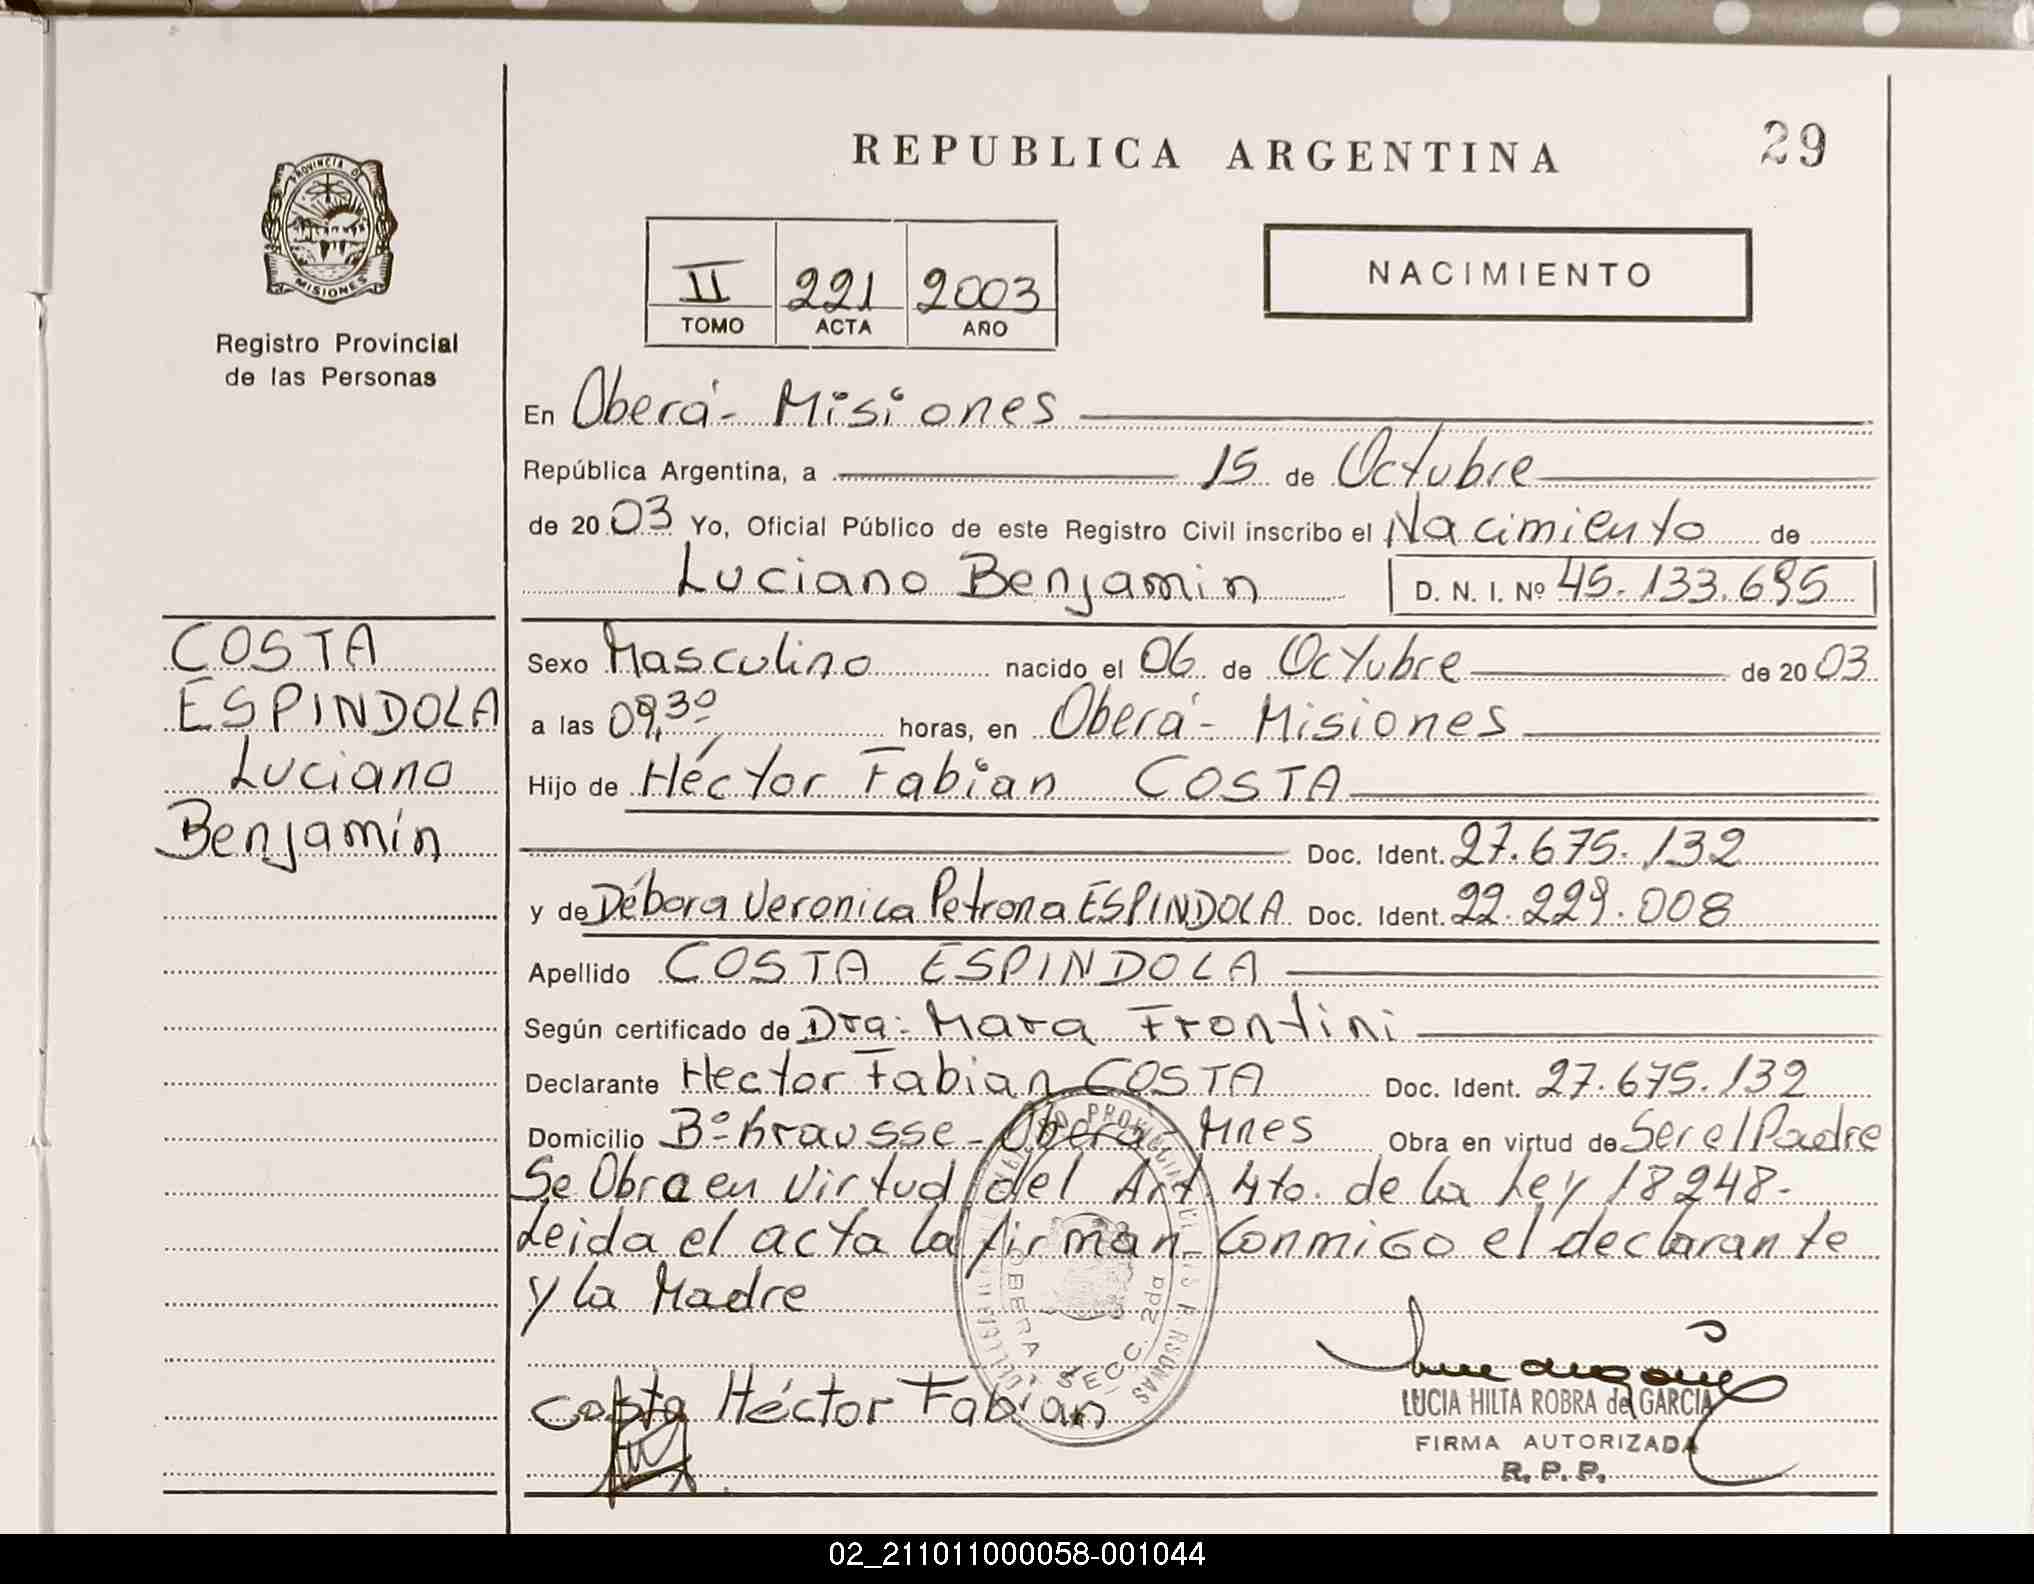 REPUBLICA ARGENTINA
29
PROVINCIA D
MISIONES
Registro Provincial
de las Personas
II 221 2003
TOMO ACTA AÑO
NACIMIENTO
En Oberá - Misiones
República Argentina, a 15 de Octubre
de 20 03 Yo, Oficial Público de este Registro Civil inscribo el Nacimiento de
Luciano Benjamin D. N. I. Nº 45.133.695
COSTA
ESPINDOLA
Luciano
Benjamín
Sexo Masculino nacido el 06 de Octubre de 20 03
a las 09,30 horas, en Oberá - Misiones
Hijo de Héctor Fabian COSTA
Doc. Ident. 27.675.132
y de Débora Veronica Petrona ESPINDOLA Doc. Ident. 22.229.008
Apellido COSTA ESPINDOLA
Según certificado de Dra: Mara Frontini
Declarante Hector Fabian COSTA Doc. Ident. 27.675.132
Domicilio Bº Krausse - Oberá - Mnes Obra en virtud de Ser el Padre
Se Obra en virtud del Art 4to. de la Ley 18248-
Leida el acta la firman conmigo el declarante
y la Madre
OBERA SECC. 2da
Costa Héctor Fabian
LUCIA HILTA ROBRA de GARCIA
FIRMA AUTORIZADA
R. P. P.
02_211011000058-001044